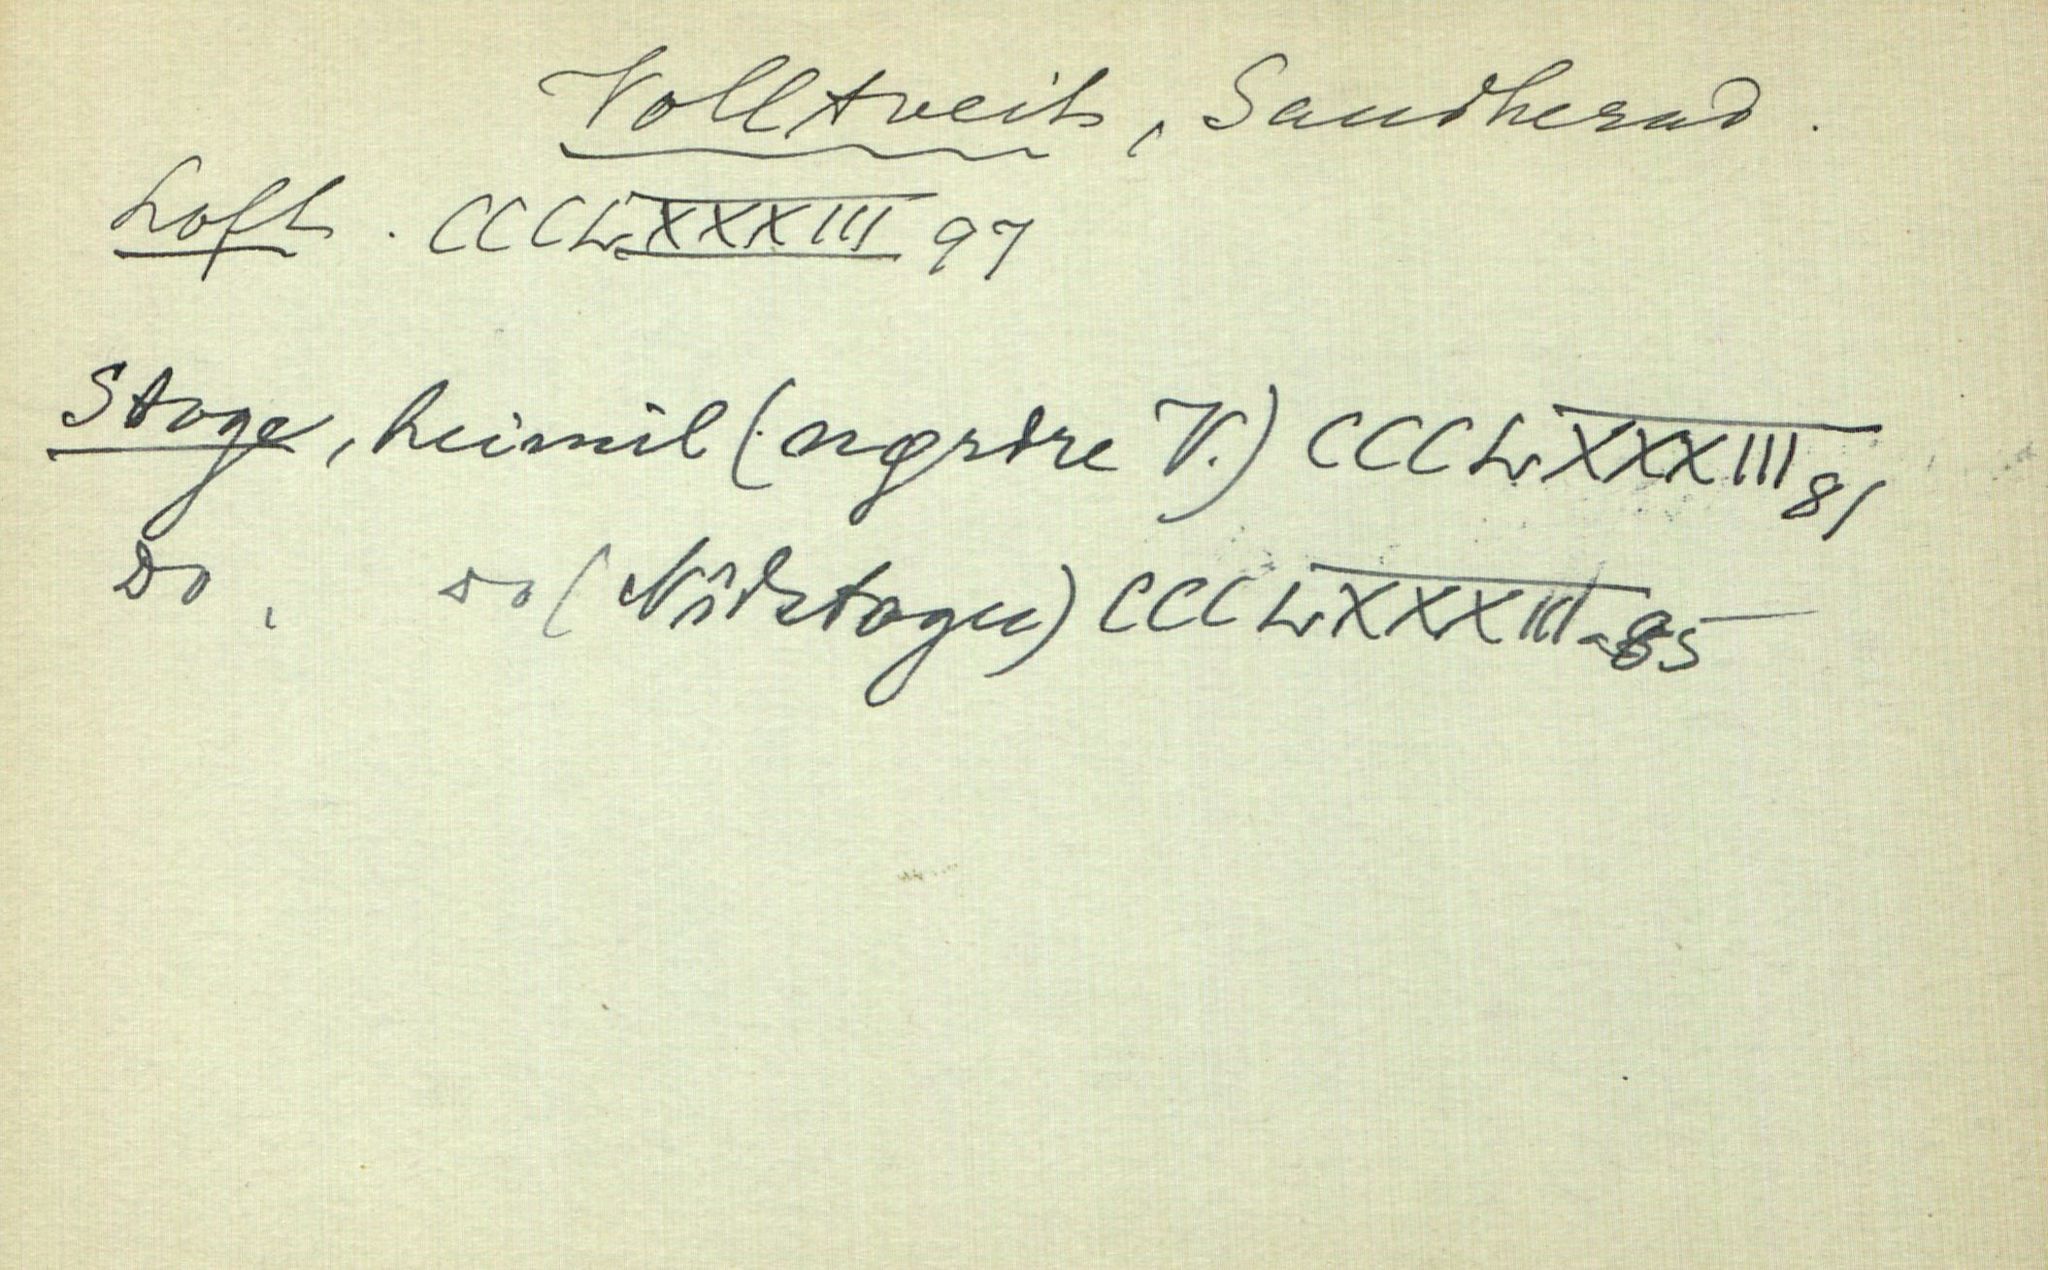 Volltveit, Sauherad.
Loft. CCCLXXXIII 97
Stoge, heimil (nørdre V.) CCCLXXXIII 81
Do, do (Nistogu) CCCLXXXIII 85